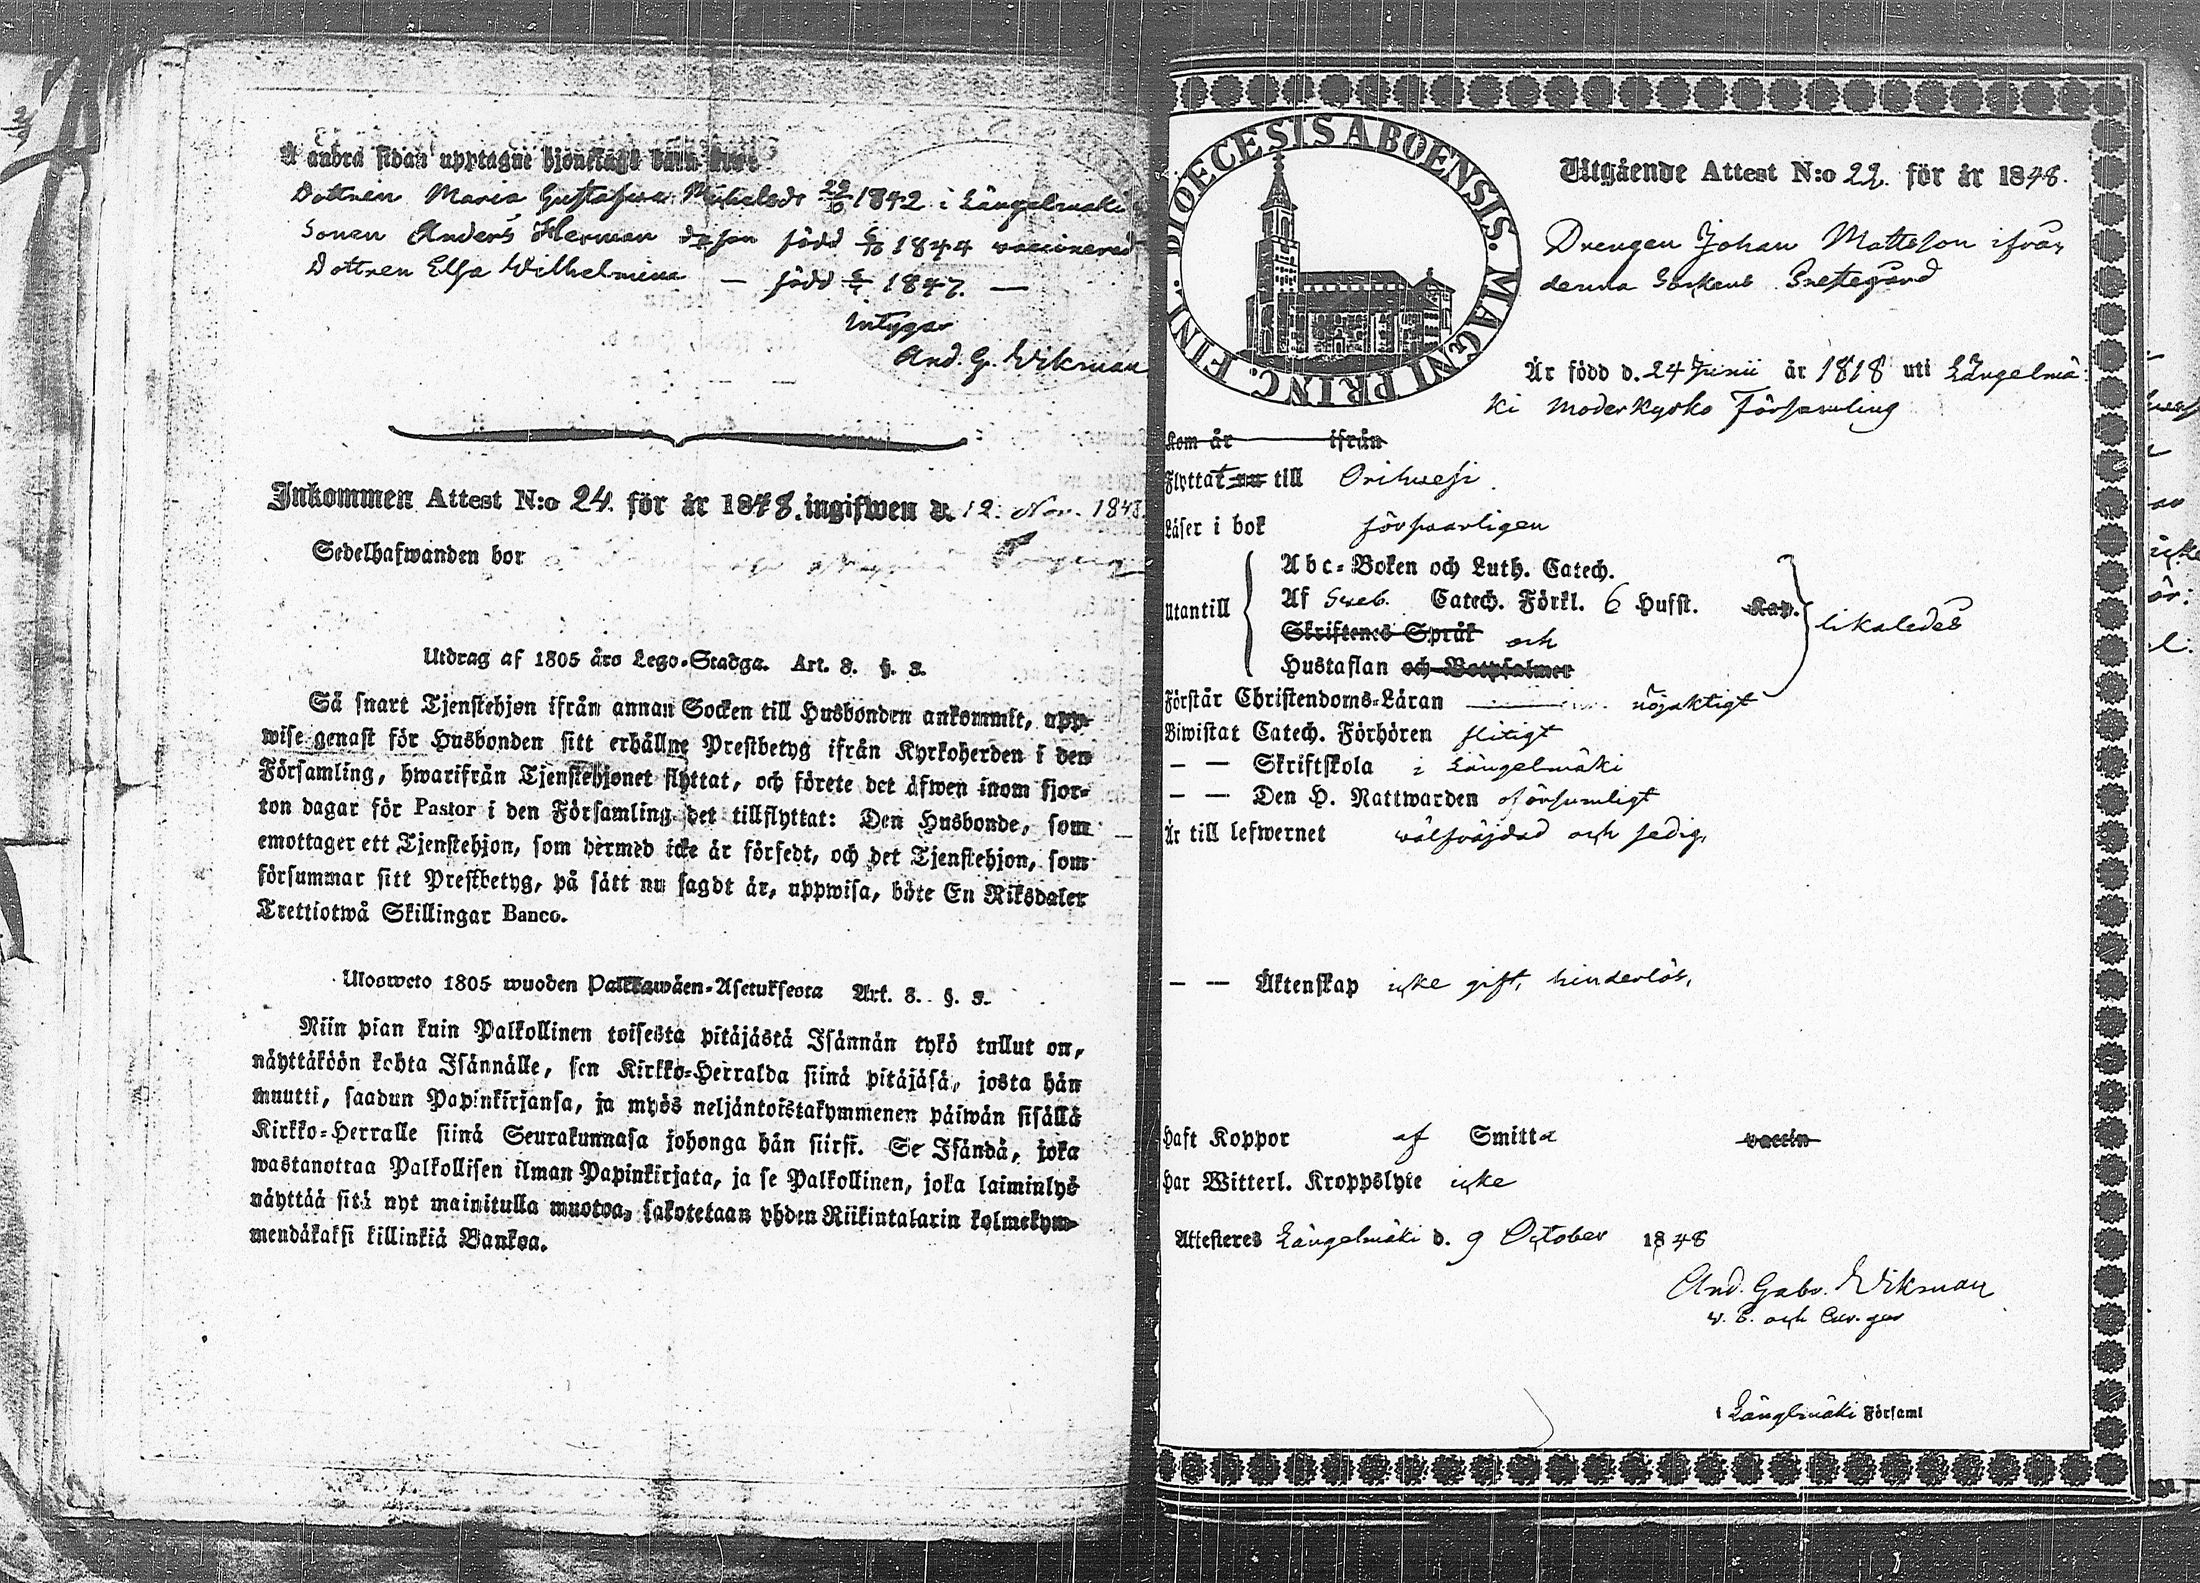 Å andra sidan upptagne hjonelags barn äro:
Dottren Maria Gustafwa Michelsdr 22/6 1842 i Längelmäki
Sonen Anders Herman född 1844 vaccinered
Dottren Elsa Wilhelmina — född 1847. —
Intygar
And. G. Wikman
Inkommen Attest N:o 24. för år 1848. ingifwen d. 12. Nov. 1848.
Sedelhafwanden bor
Utdrag af 1805 års Lego-Stadga. Art. 8. §. 3.
Så snart Tjenstehjon ifrån annan Socken till Husbonden ankommit, upp-
wise genast för Husbonden sitt erhållne Prestbetyg ifrån Kyrkoherden i den
Församling, hwarifrån Tjenstehjonet flyttat, och förete det äfwen inom fjor-
ton dagar för Pastor i den Församling det tillflyttat: Den Husbonde, som
emottager ett Tjenstehjon, som dermed icke är försedt, och det Tjenstehjon, som
försummar sitt Prestbetyg, på sätt nu sagdt är, uppwisa, böte En Riksdaler
Trettiotwå Skillingar Banco.
Ulosweto 1805 wuoden Palkkawäen-Asetuksesta Art. 8. §. 3.
Niin pian kuin Palkollinen toisesta pitäjästä Isännän tykö tullut on,
näyttäköön kohta Isännälle, sen Kirkko-Herralda siinä pitäjäsä, josta hän
muutti, saadun Papinkirjansa, ja myös neljäntoistakymmenen päiwän sisällä
Kirkko-Herralle siinä Seurakunnasa johonga hän siirsi. Se Isändä, joka
wastanottaa Palkollisen ilman Papinkirjata, ja se Palkollinen, joka laiminlyö
näyttää sitä nyt mainitulla muotoa, sakotetaan yhden Riikintalarin kolmekym-
mendäkaksi killinkiä Bankoa.
DIOECESIS ABOENSIS. MAGNI PRINC. FINL.
Utgående Attest N:o 22. för år 1848.
Drengen Johan Mattsson ifrån
denna Sockens Prestegård
Är född d. 24 Junii år 1818 uti Längelmä-
ki Moderkyrko Församling
Kom år ifrån
Flyttat nu till Orihwesi.
Läser i bok försvarligen
Abc-Boken och Luth. Catech.
Utantill Af Sveb. Catech. Förkl. 6 Hufst. Kap. likaledes
Skriftenes Språk och
Hustaflan och Botpsalmer
Förstår Christendoms-Läran nöjaktigt
Biwistat Catech. Förhören flitigt
— — Skriftskola i Längelmäki
— — Den H. Nattwarden oförsumligt
Är till lefwernet välfräjdad och sedig,
— — Äktenskap icke gift, hinderlös.
Haft Koppor af Smitta vaccin
Har Witterl. Kroppslyte icke
Attesteres Längelmäki d. 9 October 1848
And. Gabr. Wikman
v. P. och Cur. ger
i Längelmäki Församl